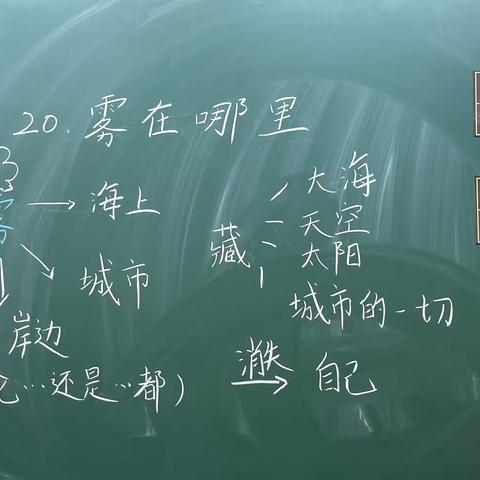 20.雾在哪里
雾 → 海上
城市
岸边
…还是…都)
藏
大海
天空
太阳
城市的一切
消失 → 自己